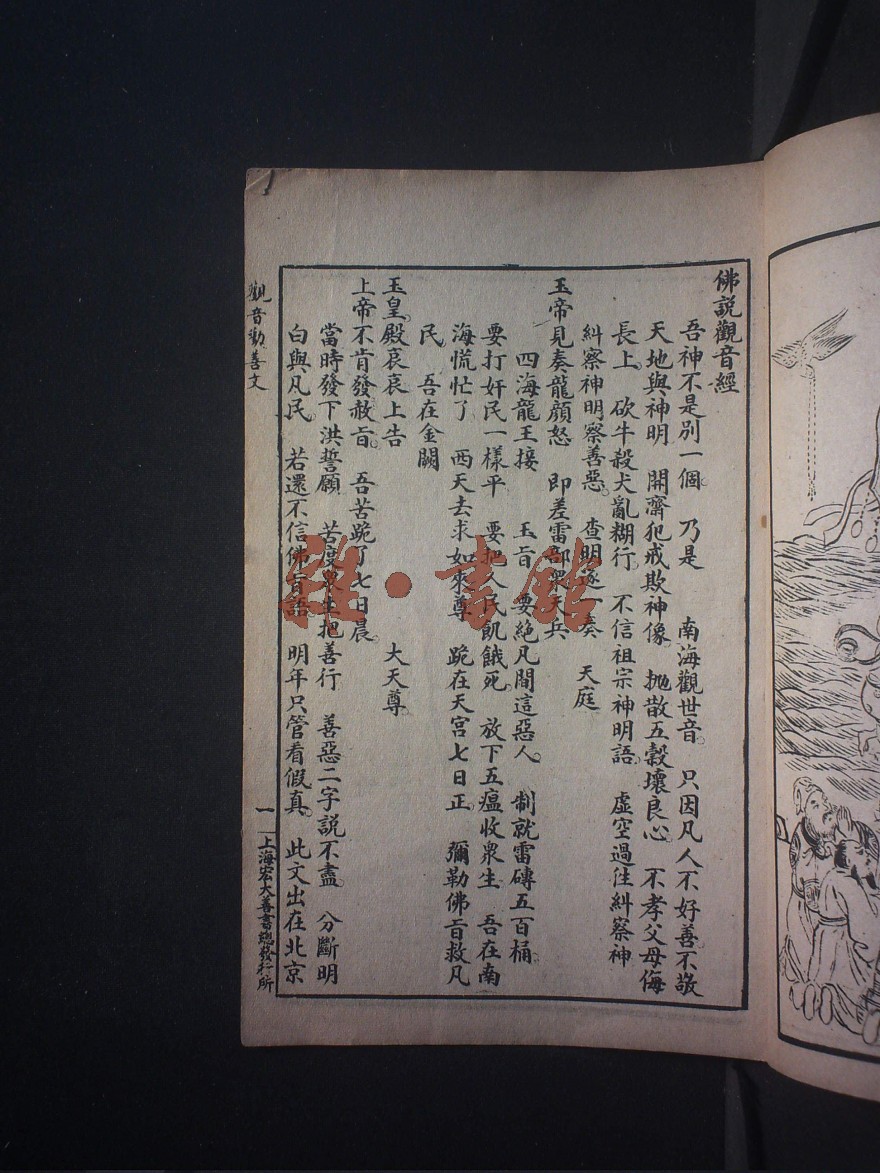 佛說觀音經
吾神不是別一個。 乃是 南海觀世音。 只因凡人不好善不敬
天地與神明 開齋犯戒欺神像。 拋散五穀壞良心。 不孝父母侮
長上。 砍牛殺犬亂糊行。 不信祖宗神明語。 虛空過往糾察神
糾察神明察善惡。 查明逐一奏 天庭
玉帝見奏龍顏怒 即差雷部衆天兵
四海龍王接 玉旨 要絕凡間這惡人 制就雷磚五百桶。
要打奸民一樣平 要把人民飢餓死。 放下五瘟收衆生 吾在南
海慌忙了 西天去求如來尊 跪在天宮七日正 彌勒佛旨救凡
民 吾在金闕
玉皇殿哀哀上告 大天尊。
上帝不肯發赦旨。 吾苦跪了七日晨。
當時發下洪誓願 苦度衆生把善行 善惡二字說不盡。 分斷明
白與凡民。 若還不信佛旨語。 明年只管看假真。 此文出在北京
觀音勸善文
一
上海宏大善書總發行所
雜·書館